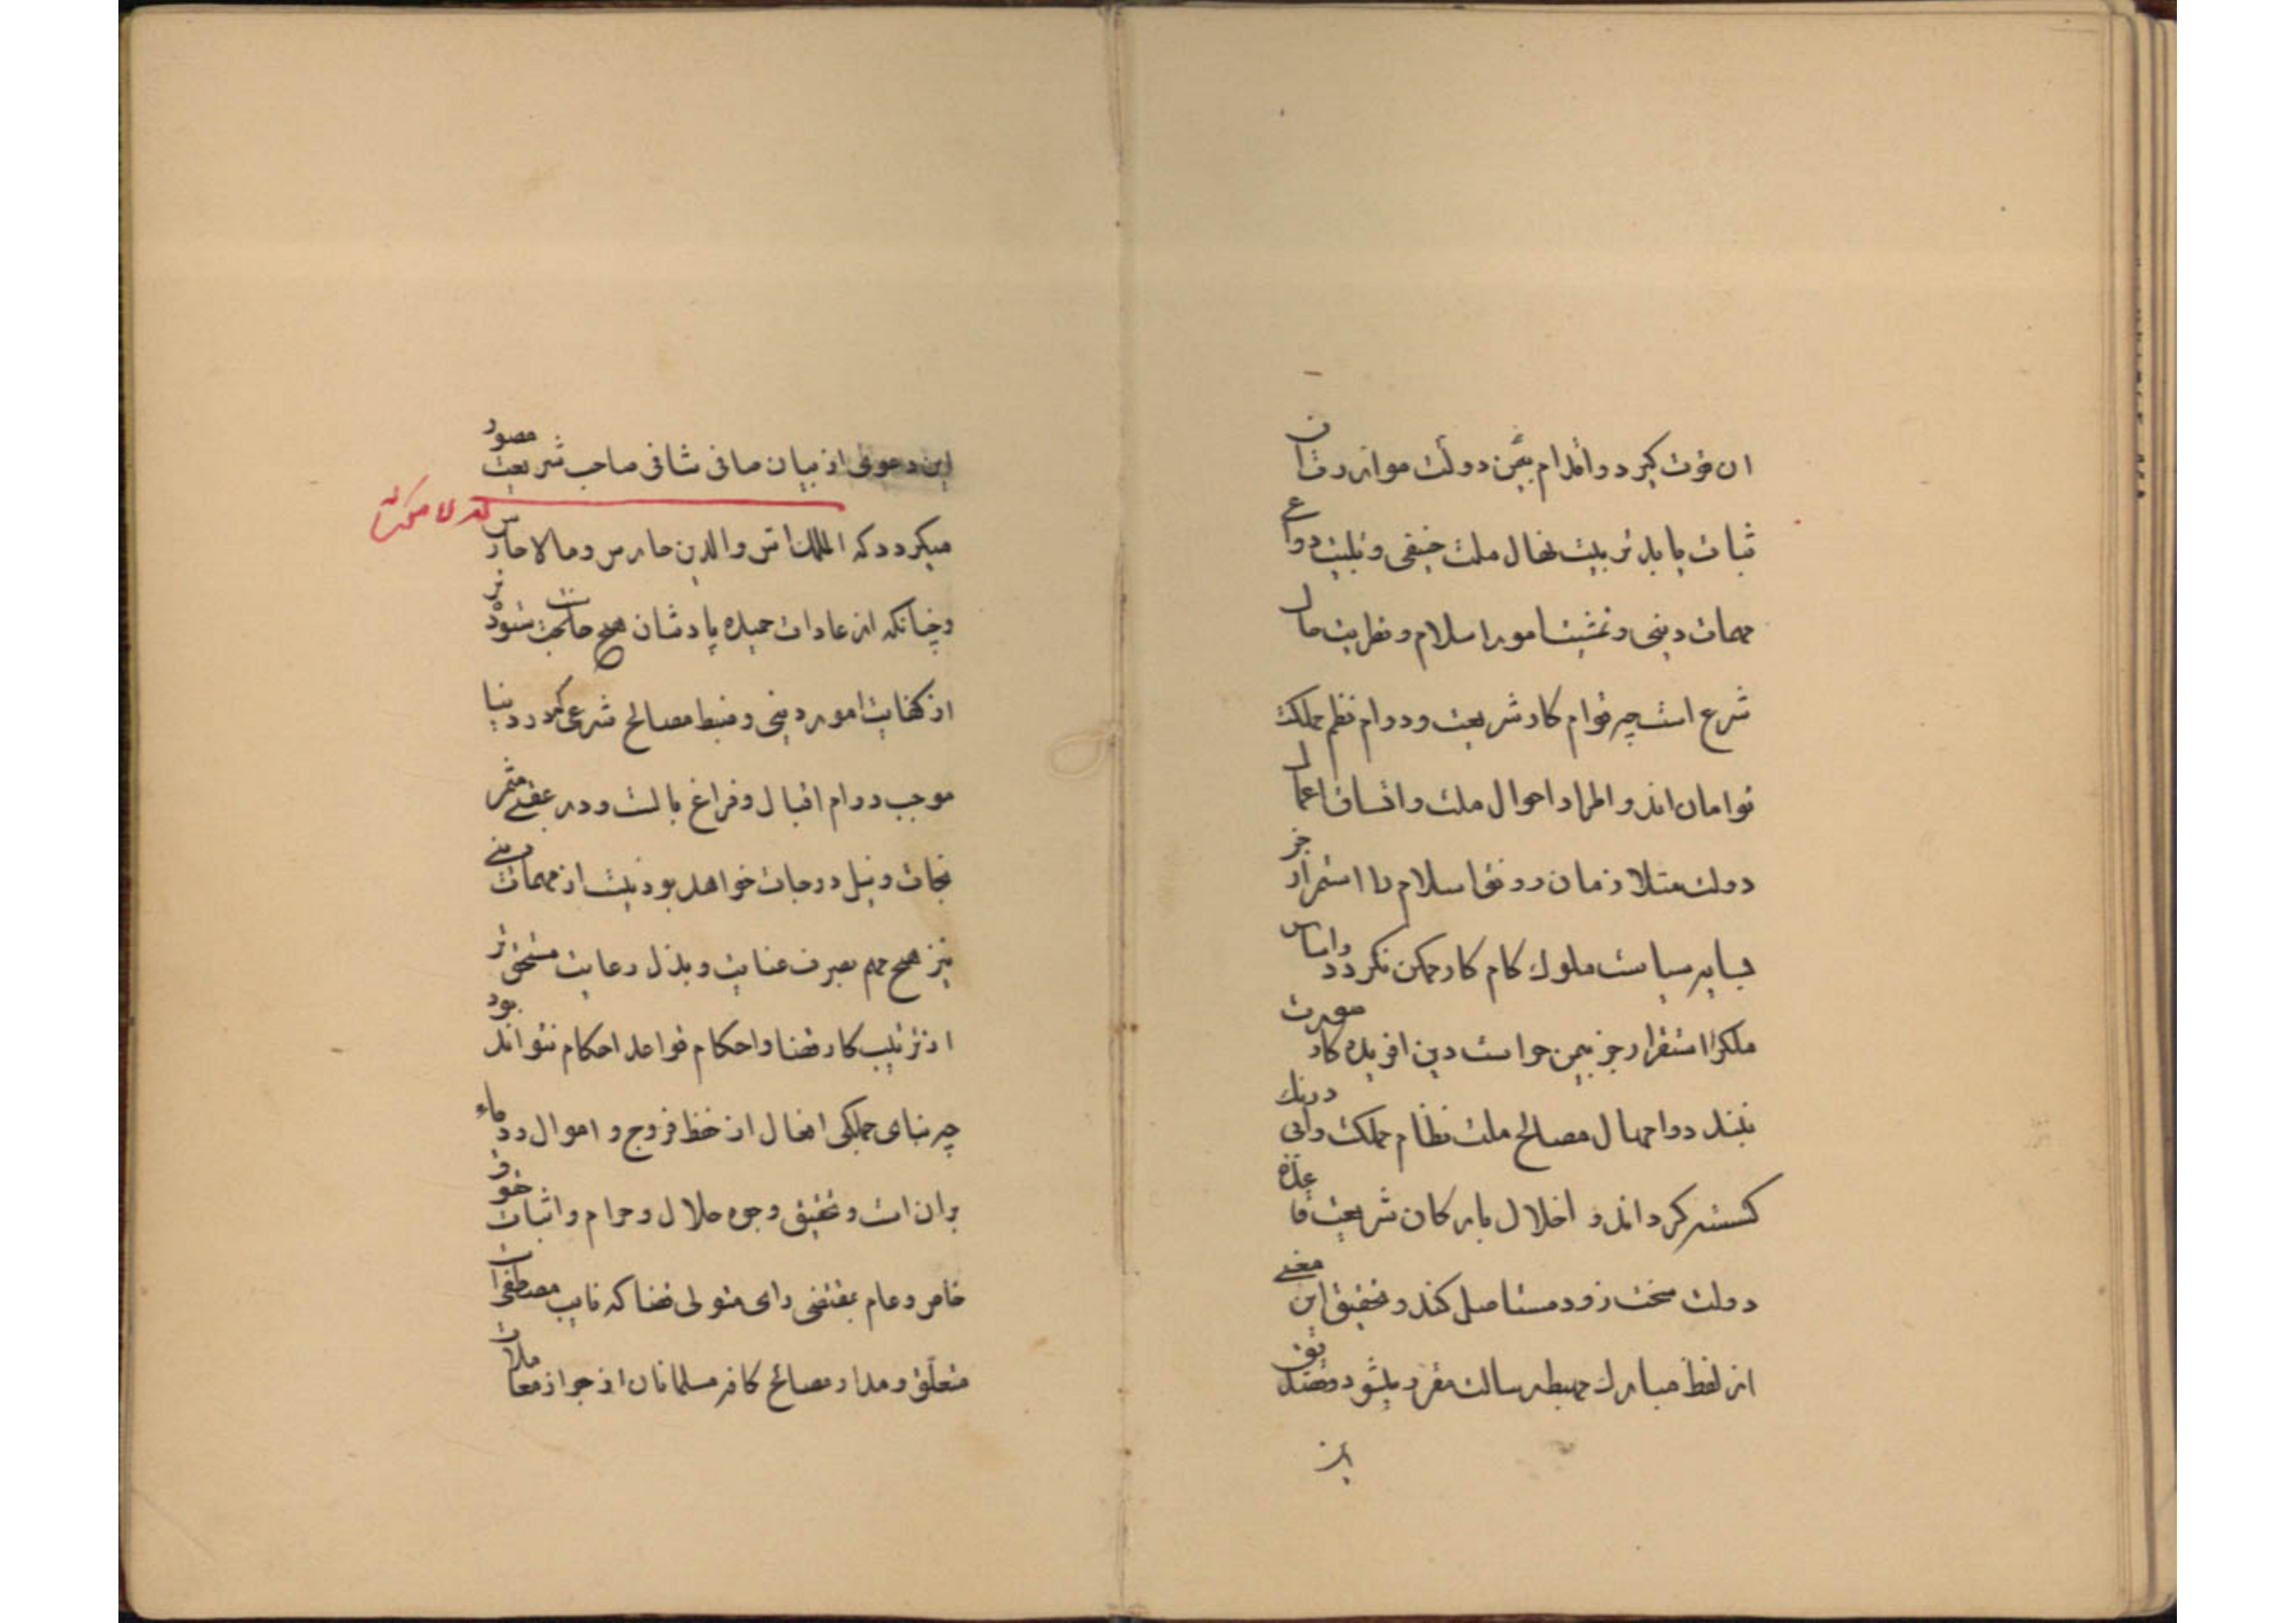 ان قوت کیرد و اقدام بیمن دولت موازرت ان
ثبات یابد تربیت نهال ملت حنیفی و تلبیت دواع
مهمات دینی و تمشیت امور اسلام و نظریت حال
شرع است چه قوام کار شریعت و دوام نظم مملکت
توامان اند و اطراد احوال ملت و اتساق اعمال
دولت متلازمان رونق اسلام را استمرار جز
بسایه سیاست ملوک کام کار ممکن نکردد و اساس
ملک را استقرار جز بیمن حواست دین افریده کار صورت
نبندد و اهمال مصالح ملت نظام مملکت را بی درنک
کسسته کرداند و اخلال بارکان شریعت قاعده
دولت سخت زود مستاصل کند و تحقیق این معنی
از لفظ مبارک مهبط رسالت مقرر میشود و تصدیق
این دعوی از بیان صافی شافی صاحب شریعت مصور
میکردد که الملک اس والدین حارس ومالا حارس
وچنانکه از عادات حمیده پادشان هیچ حالت ستوده تر
از کفایت امور دینی و ضبط مصالح شرعی که در دنیا
موجب دوام اقبال و فراغ بالست و در عقبی مثمر
نجات و نیل درجات خواهد بود نیست از مهمات دینی
نیز هیچ مهم بصرف عنایت و بذل رعایت مستحق تر
از ترتیب کار قضا و احکام قواعد احکام نتواند بود
چه بنای جملکی افعال از حفظ فروج و اموال و دماء
بران است و تحقیق وجوه حلال و حرام و اثبات حقوق
خاص و عام بمقتضی رای متولی قضا که نایب مصطفی است
متعلق و مدار مصالح کافه مسلمانان از جواز معاملات